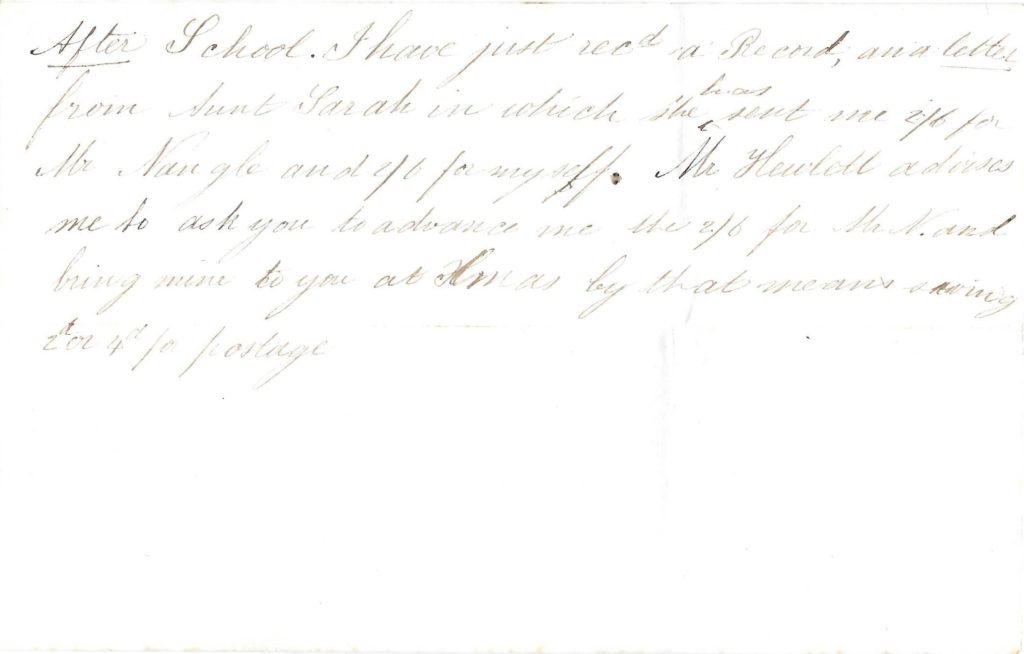 After School. I have just recd a Record, and a letter
from Aunt Sarah in which she has sent me 2/6 for
Mr Nangle and 2/6 for myself. Mr Hewlett advises
me to ask you to advance me the 2/6 for Mr N. and
bring mine to you at Xmas by that means saving
2d or 4d for postage